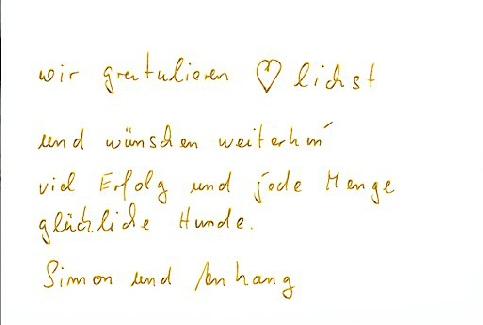 wir gratulieren ♡lichst
und wünschen weiterhin
viel Erfolg und jede Menge
glückliche Hunde.
Simon und Anhang